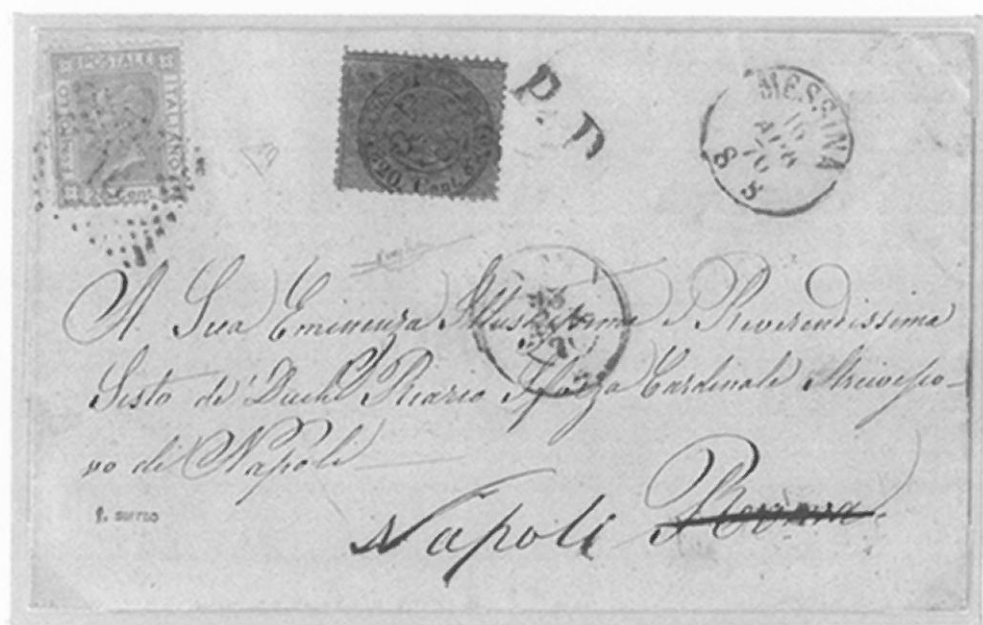 POSTALE ITALIANO
Cent.
20 Cent
P. D
MESSINA
16
APR
70
8 S
23
A Sua Eminenza Illustrissima e Reverendissima
Sisto de' Duchi Riario Sforza Cardinale Arcivesco-
vo di Napoli
Napoli Roma